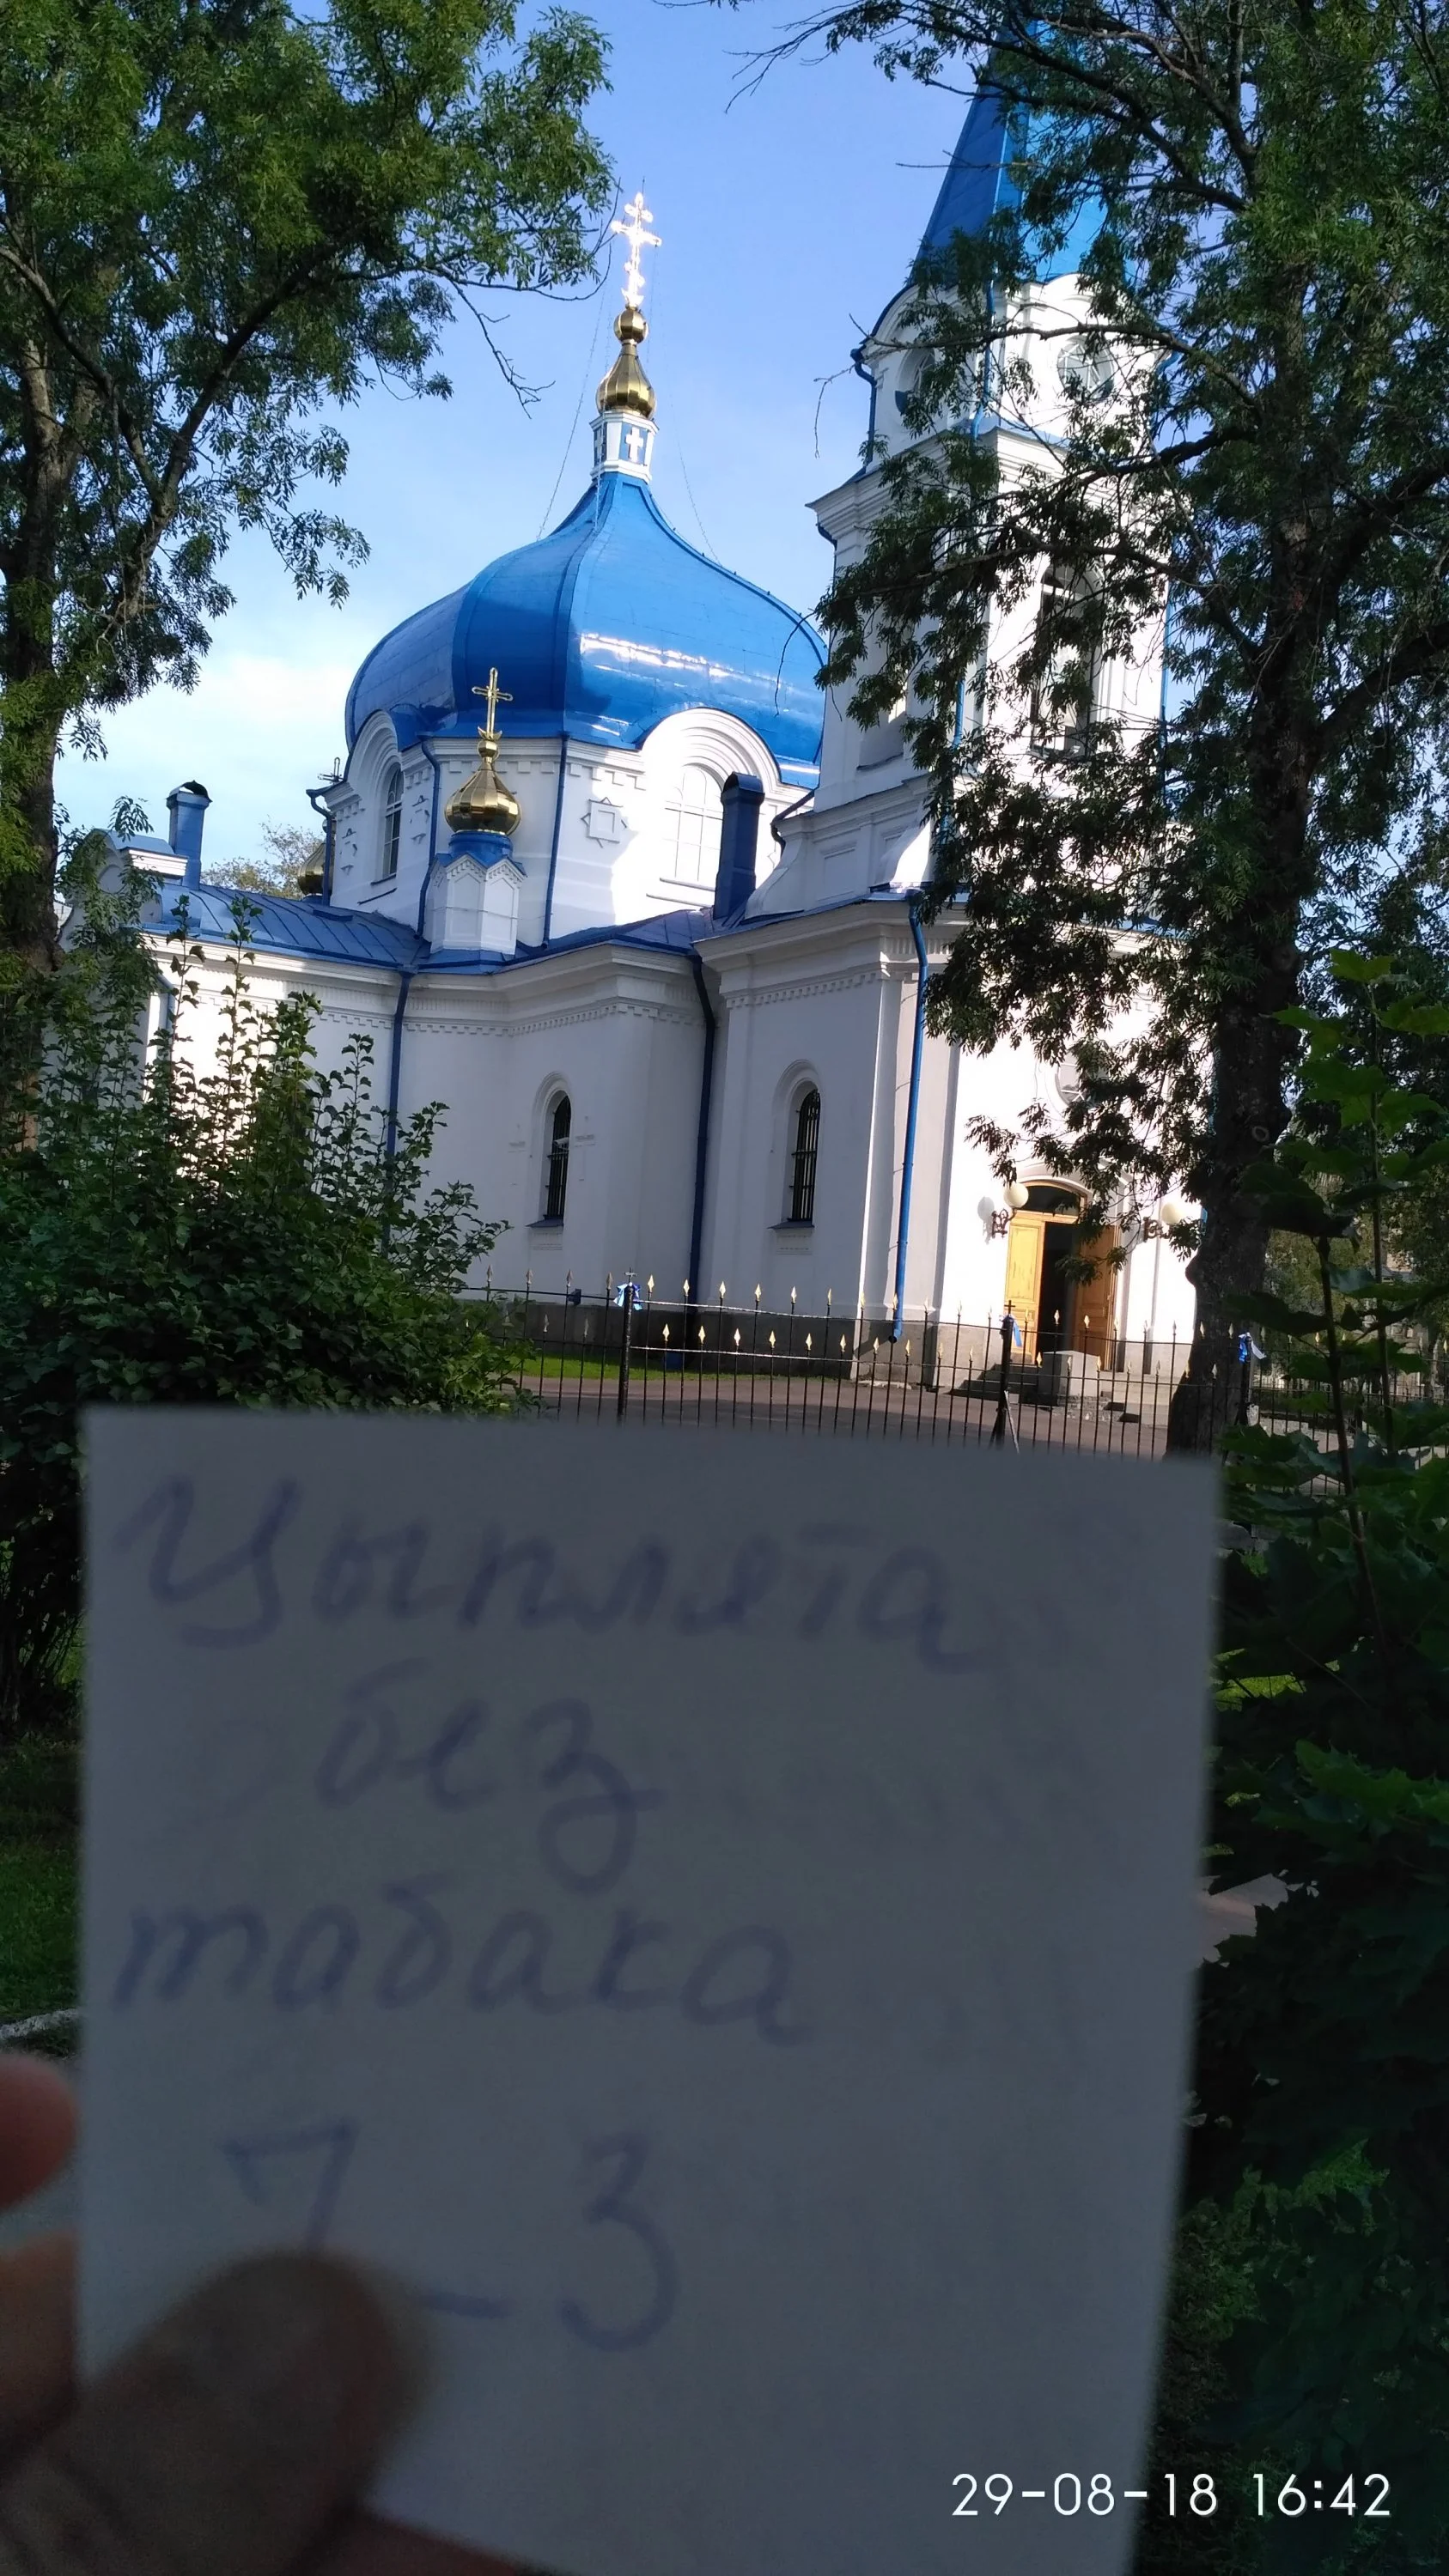 Цыплята
без
табака
7-3
29-08-18 16:42